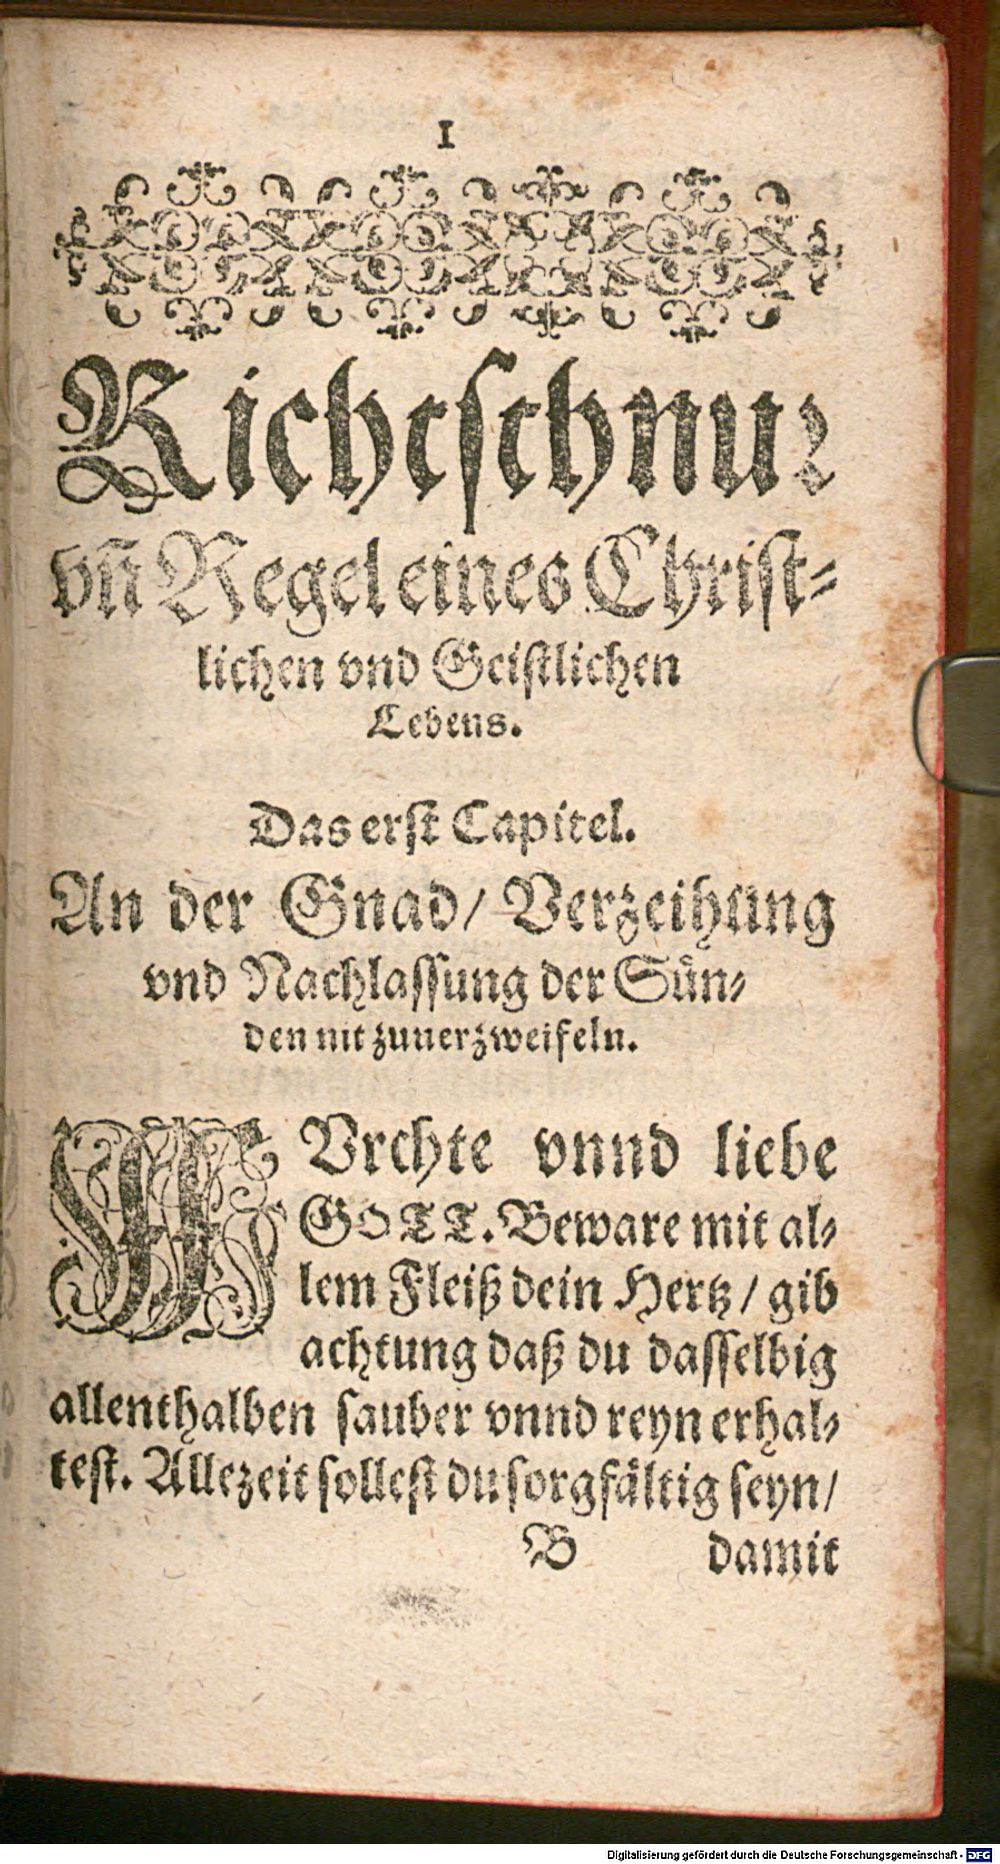 1
Richtſchnur
vñ Regel eines Chriſt-
lichen vnd Geiſtlichen
Lebens.
Das erſt Capitel.
An der Gnad/ Verzeihung
vnd Nachlaſſung der Sün-
den nit zuuerzweifeln.
FVrchte vnnd liebe
GOTT. Beware mit al-
lem Fleiß dein Hertz/ gib
achtung daß du daſſelbig
allenthalben ſauber vnnd reyn erhal-
teſt. Allezeit ſolleſt du ſorgfältig ſeyn/
B damit
Digitalisierung gefördert durch die Deutsche Forschungsgemeinschaft - DFG